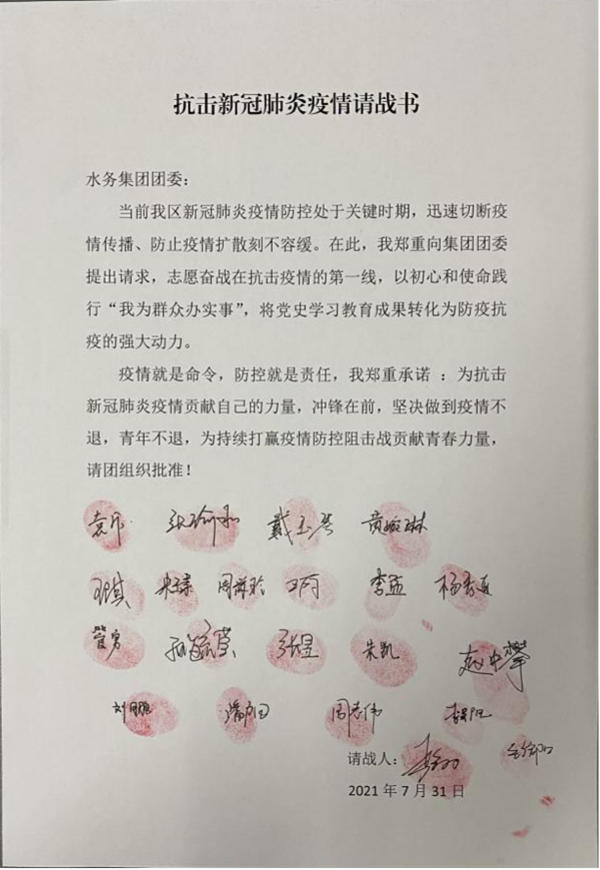 抗击新冠肺炎疫情请战书
水务集团团委：
当前我区新冠肺炎疫情防控处于关键时期，迅速切断疫
情传播、防止疫情扩散刻不容缓。在此，我郑重向集团团委
提出请求，志愿奋战在抗击疫情的第一线，以初心和使命践
行“我为群众办实事”，将党史学习教育成果转化为防疫抗
疫的强大动力。
疫情就是命令，防控就是责任，我郑重承诺 ：为抗击
新冠肺炎疫情贡献自己的力量，冲锋在前，坚决做到疫情不
退，青年不退，为持续打赢疫情防控阻击战贡献青春力量，
请团组织批准！
黄婉琳
李孟
管勇 张昱 朱凯
周志伟
请战人：
2021 年 7 月 31 日